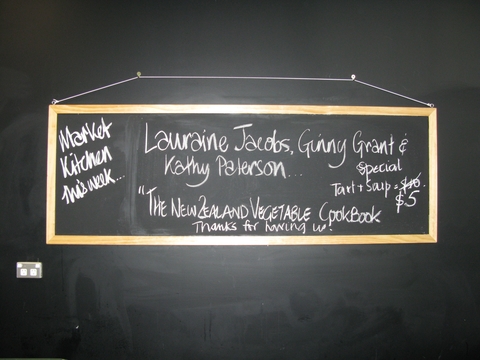 Market
Kitchen
This week...
Lauraine Jacobs, Ginny Grant &
Kathy Paterson...
Special
Tart + Soup = $10.
$5
"The New Zealand Vegetable CookBook
Thanks for having us!